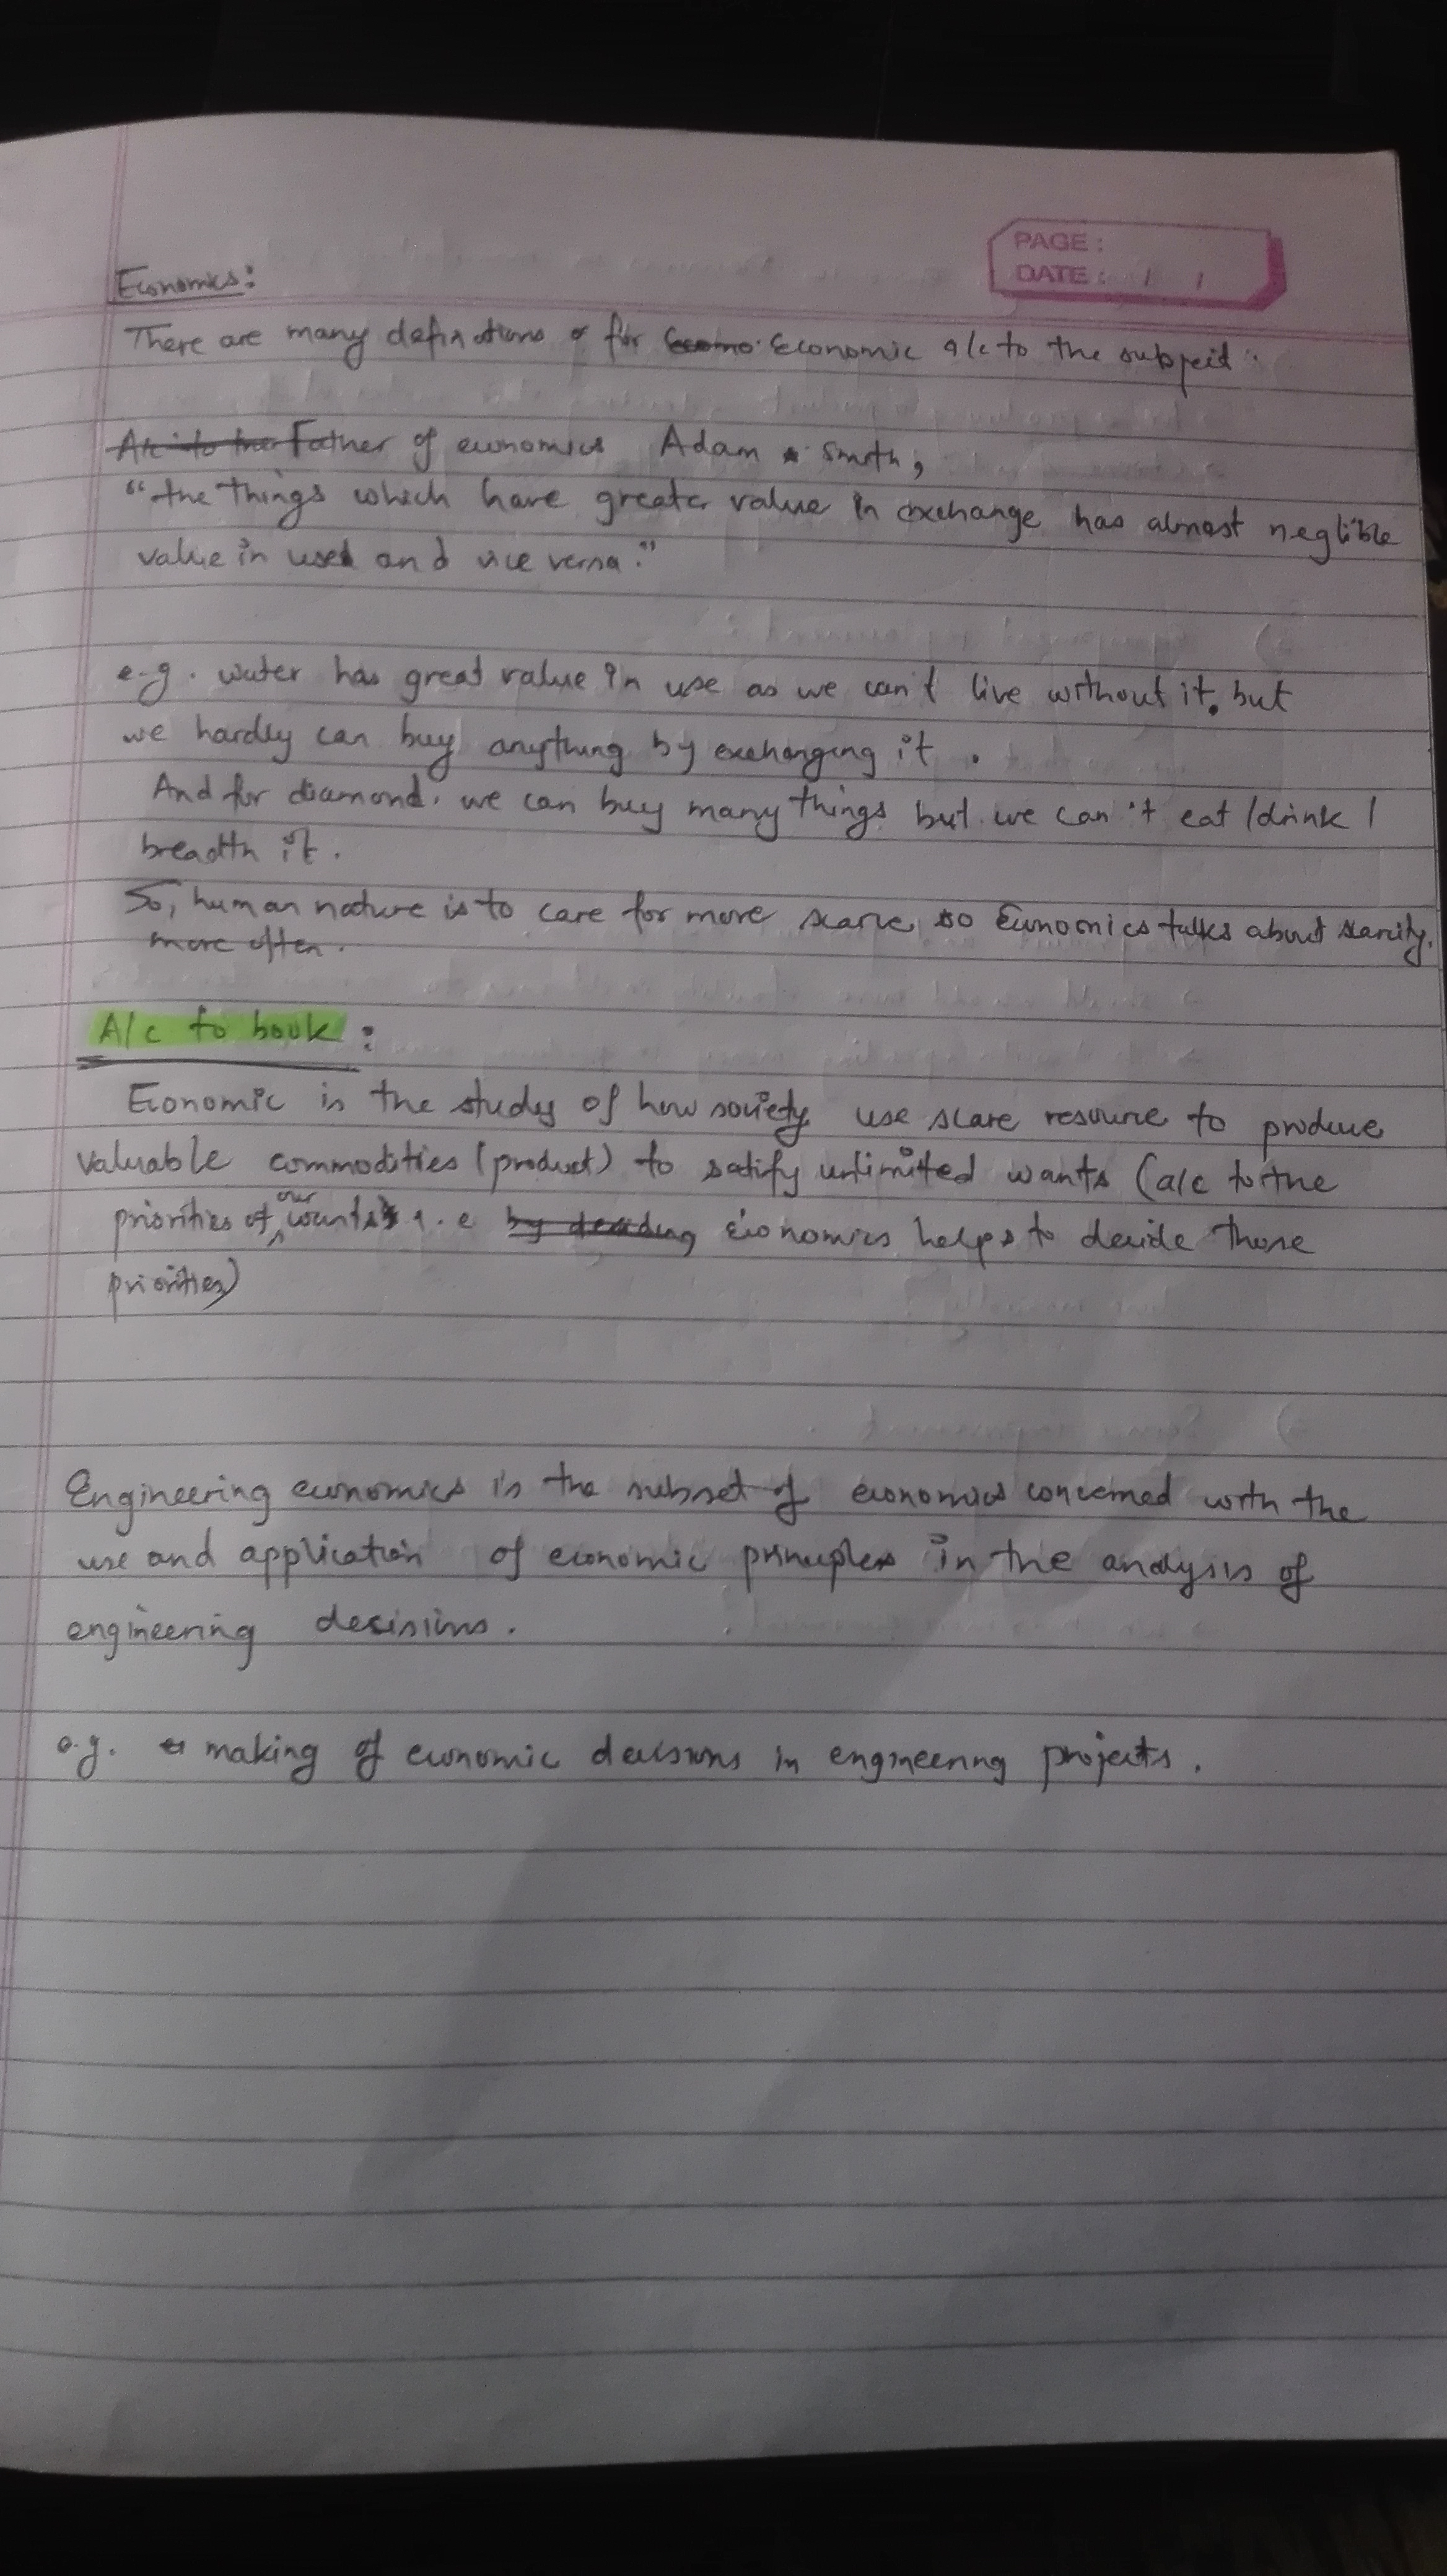 PAGE :
DATE : / /
Economics:
There are many definations of for Economic a/c to the subject :
Father of economics Adam Smith,
"the things which have greater value in exchange has almost neglible
value in used and vice versa."
e.g. water has great value in use as we can't live without it, but
we hardly can buy anything by exchanging it .
And for diamond, we can buy many things but we can't eat /drink /
breadth it.
So, human nature is to care for more scarce, so Economics talks about scarcity.
more often.
A/c to book :
Economic is the study of how society use scare resource to produce
valuable commodities (product) to satify unlimited wants (a/c to the
priorities of our wants i.e economics helps to decide those
priorities)
Engineering economics is the subset of economics concerned with the
use and application of economic principles in the analysis of
engineering decisions.
e.g. making of economic decisions in engineering projects.